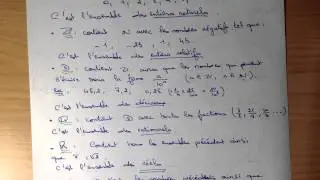 C'est l'ensemble des entiers naturels
• ℤ : contient ℕ avec les nombres négatifs tel que :
-1, -25, 1, 45
C'est l'ensemble des entiers relatifs
• 𝔻 : contient ℤ ainsi que les nombres que peut
s'écrire sous la forme a/10ⁿ (a ∈ ℤ, n ∈ ℕ).
45,2, 7,2, 0,25
C'est l'ensemble des décimaux
• ℚ : contient 𝔻 avec toutes les fractions
C'est l'ensemble des rationnels
• ℝ : Contient tous les ensembles précédent ainsi
que π, √2
C'est l'ensemble des réels
les nombres précédents ainsi que